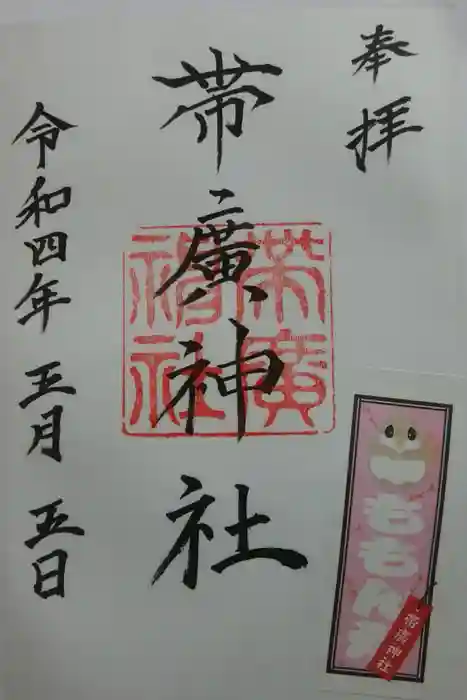 奉拝
帯廣神社
帯廣神社
令和四年 五月 五日
ももんが
帯廣神社